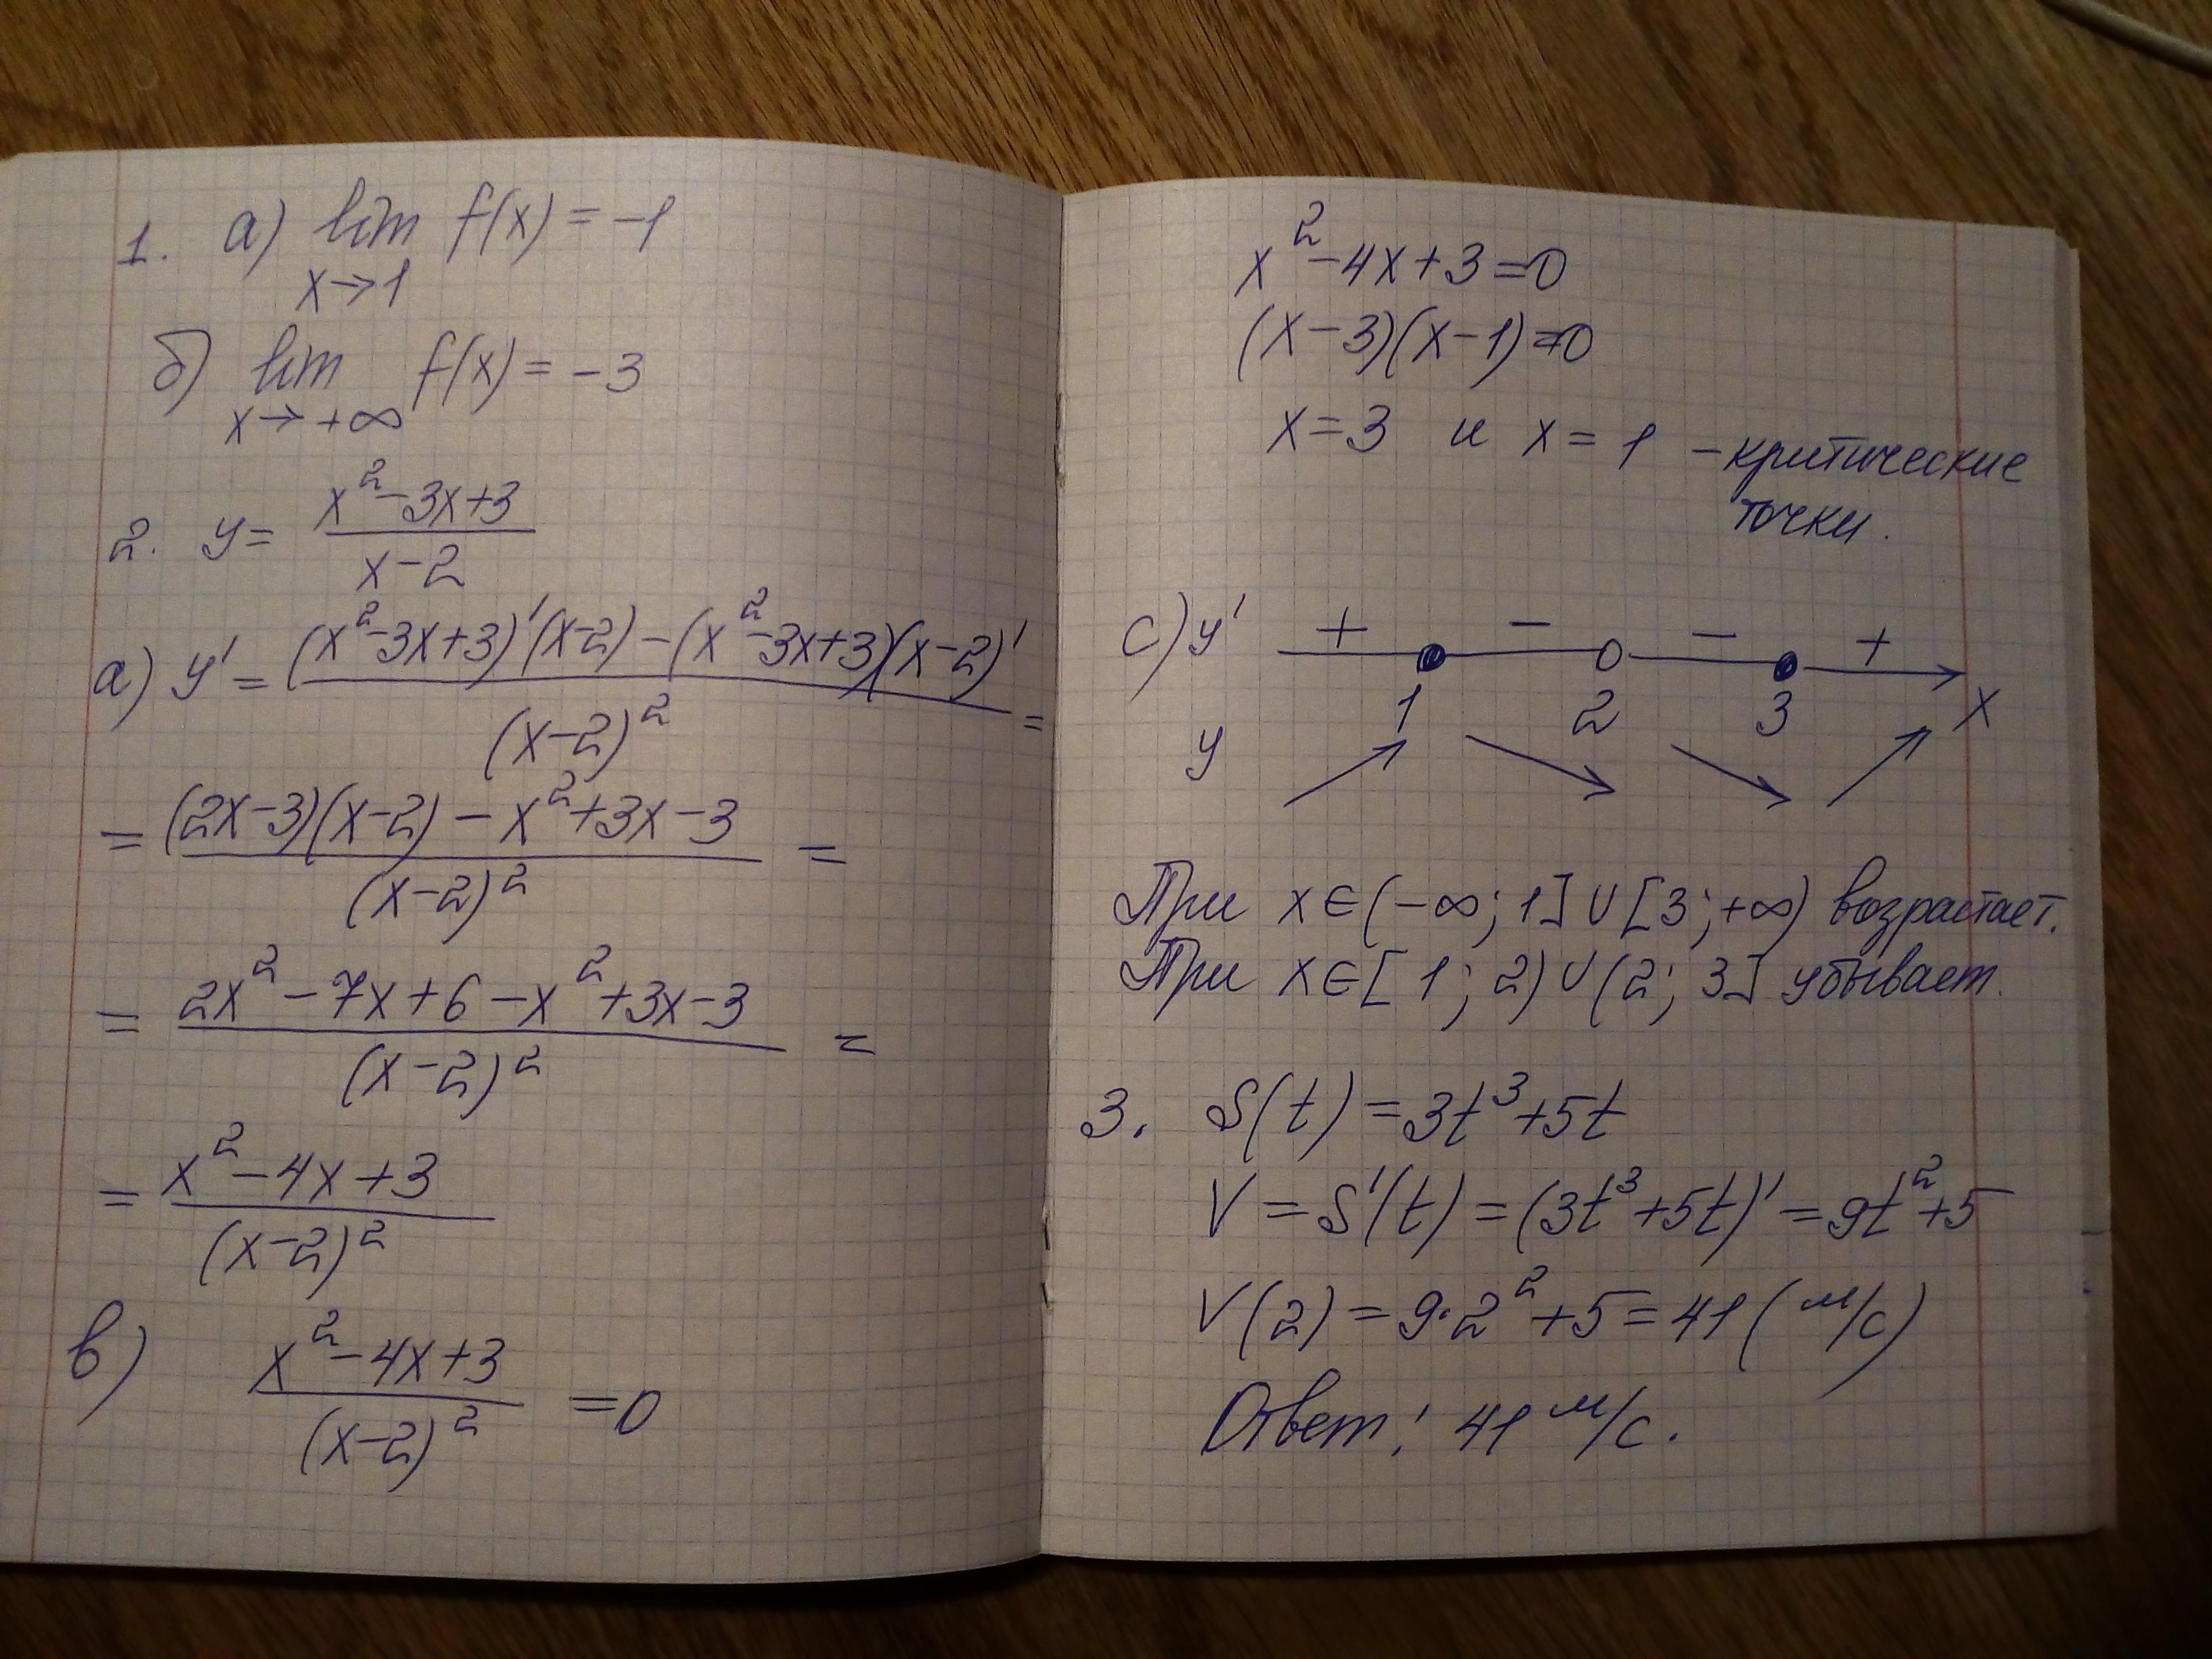 1. а) lim f(x) = -1
x→1
б) lim f(x) = -3
x→+∞
2. y = (x²-3x+3)/(x-2)
а) y' = ((x²-3x+3)'(x-2)-(x²-3x+3)(x-2)')/(x-2)² =
= ((2x-3)(x-2)-x²+3x-3)/(x-2)² =
= (2x²-7x+6-x²+3x-3)/(x-2)² =
= (x²-4x+3)/(x-2)²
в) (x²-4x+3)/(x-2)² = 0
x²-4x+3=0
(x-3)(x-1)=0
x=3 и x=1 - критические
точки.
с) y' + - - +
1 2 3 x
y
При x∈(-∞; 1]∪[3; +∞) возрастает.
При x∈[1; 2)∪(2; 3] убывает.
3. S(t)=3t³+5t
V=S'(t)=(3t³+5t)'=9t²+5
V(2)=9·2²+5=41(м/с)
Ответ: 41 м/с.